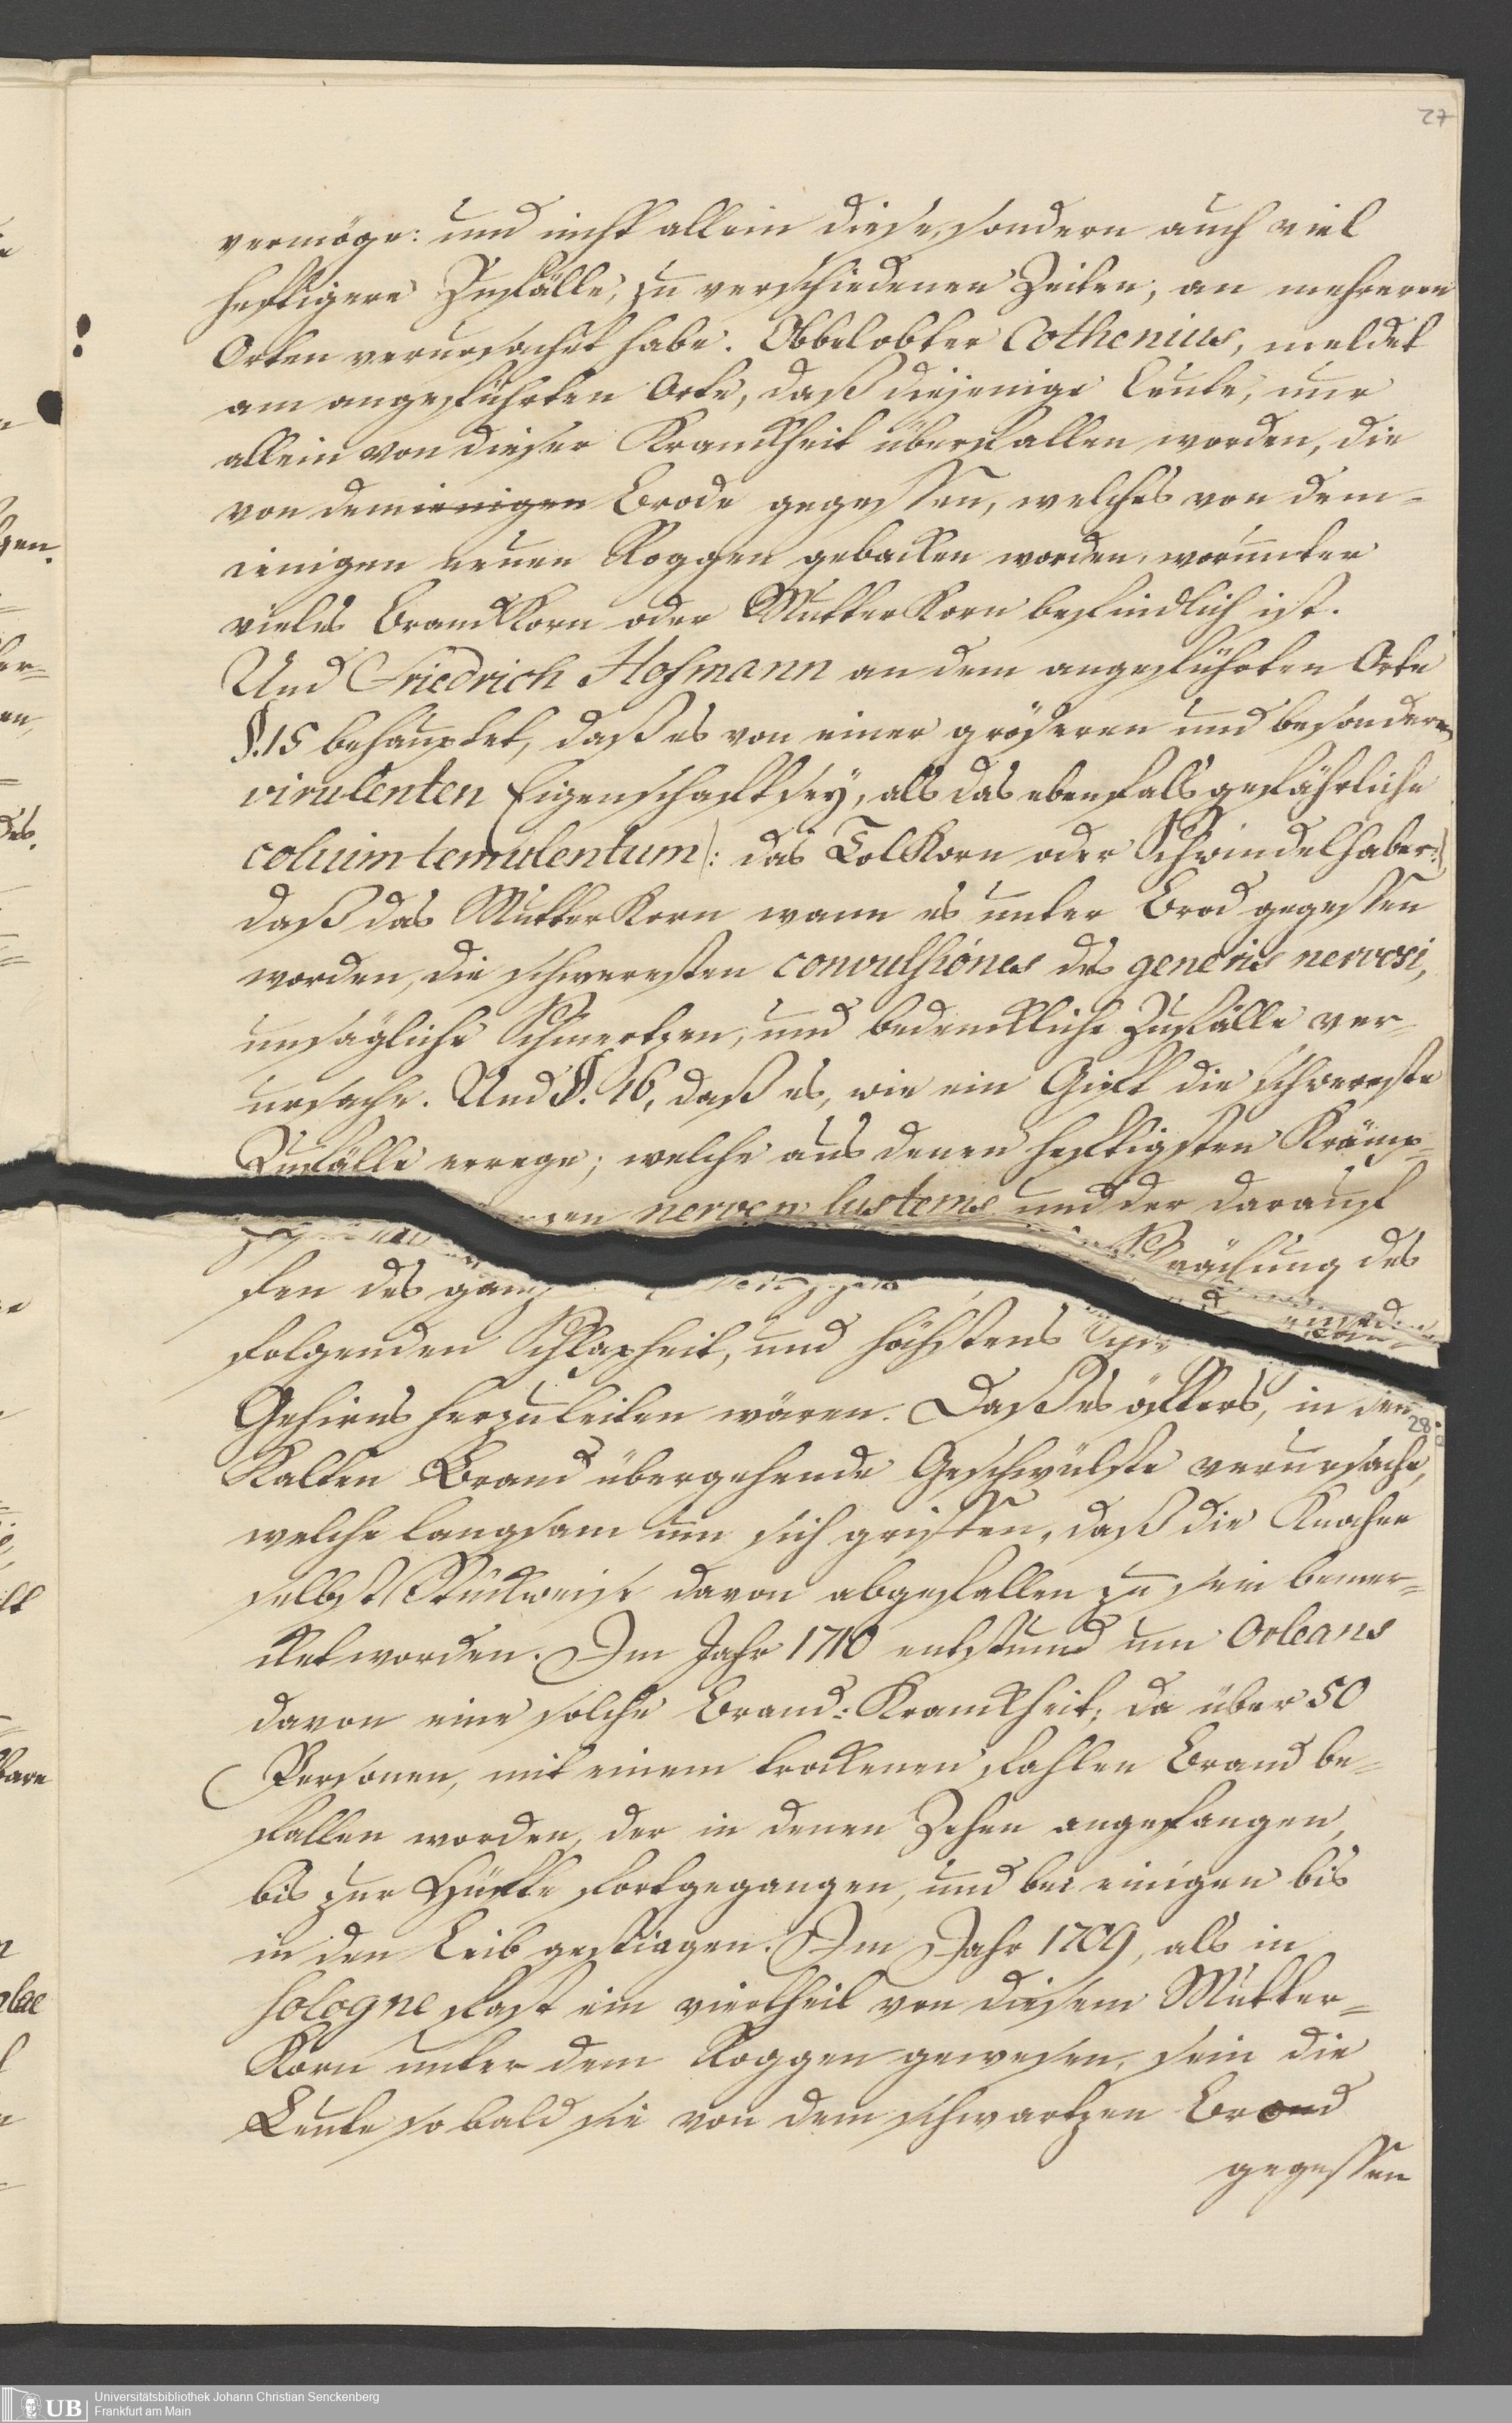 27
vermöge: und nicht allein diese, sondern auch viel
heftigere Zufälle, zu verschiedenen Zeiten, an mehreren
Orten verursachet habe. Obbelobter Cothenius, meldet
am angeführten Orte, daß diejenige Leute, nur
allein von dieser Krankheit überfallen worden, die
von demienigen Brode gegessen, welches von dem-
ienigen neuen Roggen gebacken worden, worunter
vieles BrandKorn oder MutterKorn befindlich ist.
Und Friedrich Hofmann an dem angeführten Orte
§. 15 behauptet, daß es von einer größeren und besonderen
virulenten Eigenschaft sey, als das ebenfals gefährliche
colium temulentum (: das TolKorn oder Schwindelhaber :)
daß das MutterKorn wann es unter Brod gegessen
worden, die schwersten convulsiones des generis nervosi,
unsägliche Schmertzen, und bedenkliche Zufälle ver-
ursache. Und §. 16, daß es, wie ein Gift die schwereste
Zufälle errege; welche aus denen heftigsten Krämp-
fen des ganzen nerven sustems und der darauf
folgenden Schlapheit, und höchstens Schwächung des
Gehirns herzuleiten wären. Daß es öfters, in den
28
Kalten Brand übergehende Geschwülste verursache,
welche langsam um sich griffen, daß die Knochen
selbst Stückweise davon abgefallen zu sein bemer-
ket worden. Im Jahr 1710 entstund um Orleans
davon eine solche Brand-Krankheit, da über 50
Personen, mit einem trockenen fahlen Brand be-
fallen worden, der in denen Zehen angefangen,
bis zur Hüfte fortgegangen, und bei einigen bis
in den Leib gestiegen. Im Jahr 1709, als in
Sologne fast ein viertheil von diesem Mutter-
Korn unter dem Roggen gewesen, sein die
Leute so bald sie von dem schwartzen Brod
gegessen
UB
Universitätsbibliothek Johann Christian Senckenberg
Frankfurt am Main